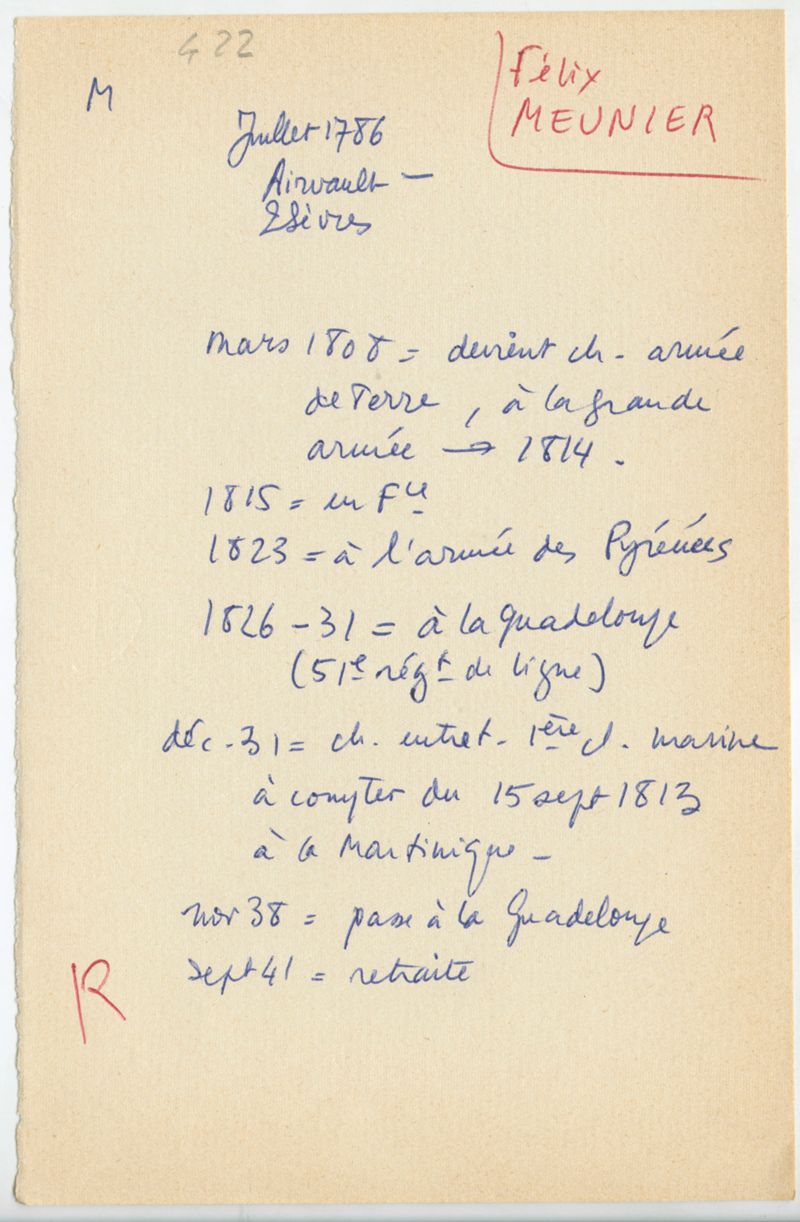 422
M
Félix
MEUNIER
Juillet 1786
Airvault -
2 Sèvres
mars 1808 = devient ch. armée
de Terre, à la grande
armée → 1814.
1815 = en Fce
1823 = à l'armée des Pyrénées
1826 - 31 = à la Guadeloupe
(51e régt de ligne)
déc. 31 = ch. entret. 1ère cl. marine
à compter du 15 sept 1813
à la Martinique -
nov 38 = passe à la Guadeloupe
sept 41 = retraite
R